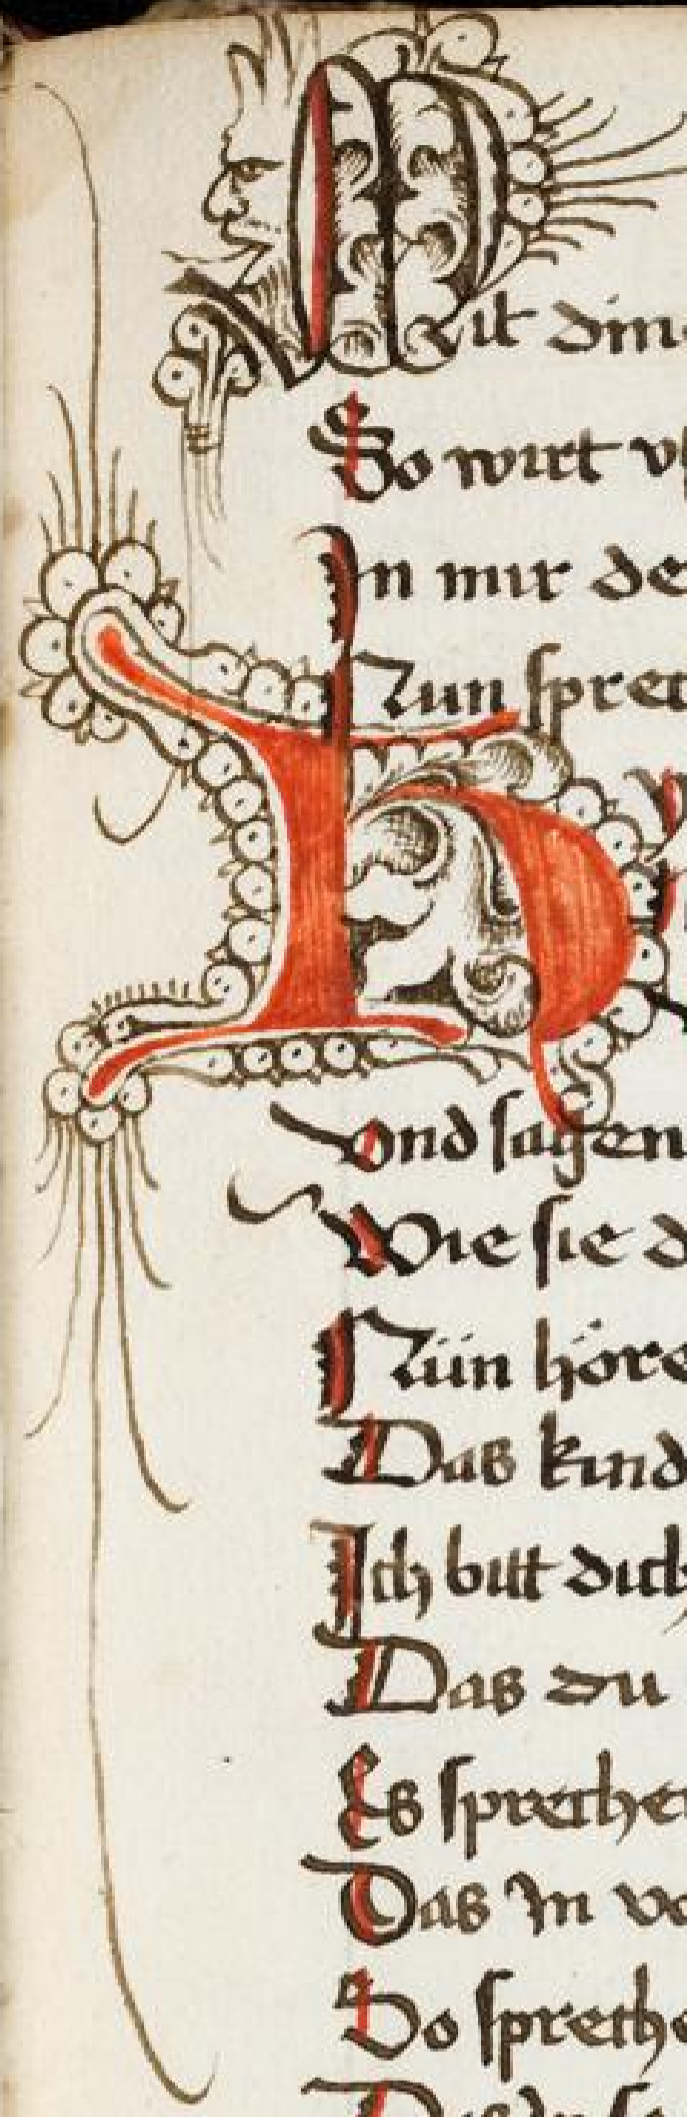 Mit din
So wirt v
In mir de
Nun spre
vnd sagen
Wie sie d
Nün höre
Das kind
Ich bitt dich
Das du
Es spreche
Das In vo
So spreche